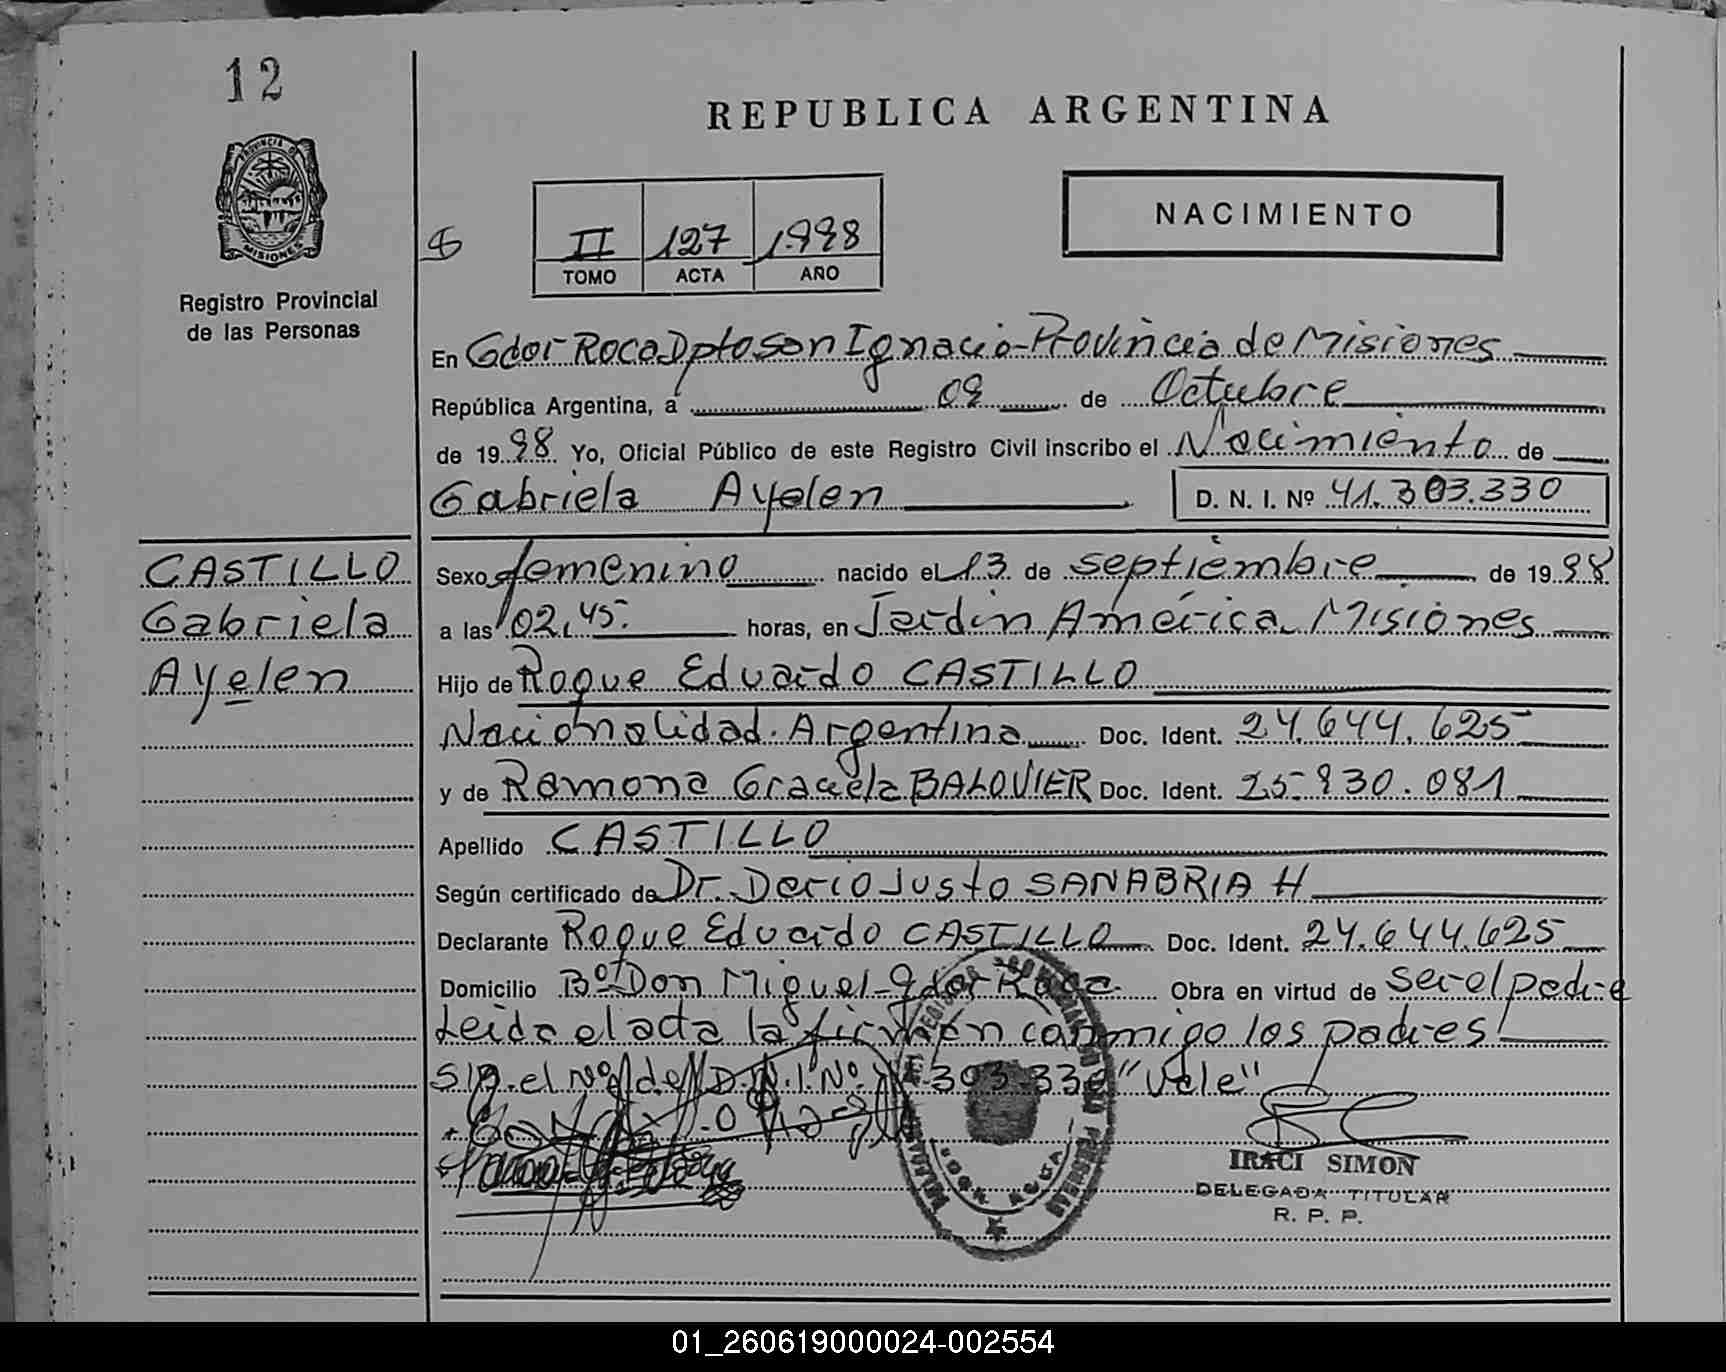 12
REPUBLICA ARGENTINA
PROVINCIA DE
MISIONES
Registro Provincial
de las Personas
NACIMIENTO
II 127 1.998
TOMO ACTA AÑO
En Gdor Roca Dpto San Ignacio-Provincia de Misiones
República Argentina, a 09 de Octubre
de 1998 Yo, Oficial Público de este Registro Civil inscribo el Nacimiento de
Gabriela Ayelen D. N. I. Nº 41.303.330
CASTILLO
Gabriela
Ayelen
Sexo femenino nacido el 13 de septiembre de 1998
a las 02,45 horas, en Jardin América Misiones
Hijo de Roque Eduardo CASTILLO
Nacionalidad Argentina Doc. Ident. 24.644.625
y de Ramona Graciela BALOVIER Doc. Ident. 25-930.081
Apellido CASTILLO
Según certificado de Dr. Dario Justo SANABRIA H
Declarante Roque Eduardo CASTILLO Doc. Ident. 24.644.625
Domicilio Bº Don Miguel-Gdor Roca Obra en virtud de ser el padre
Leida el acta la firman conmigo los padres
S/R. el Nº de D.N.I Nº 41.303.330 "Vale"
IRACI SIMON
DELEGADA TITULAR
R. P. P.
01_260619000024-002554